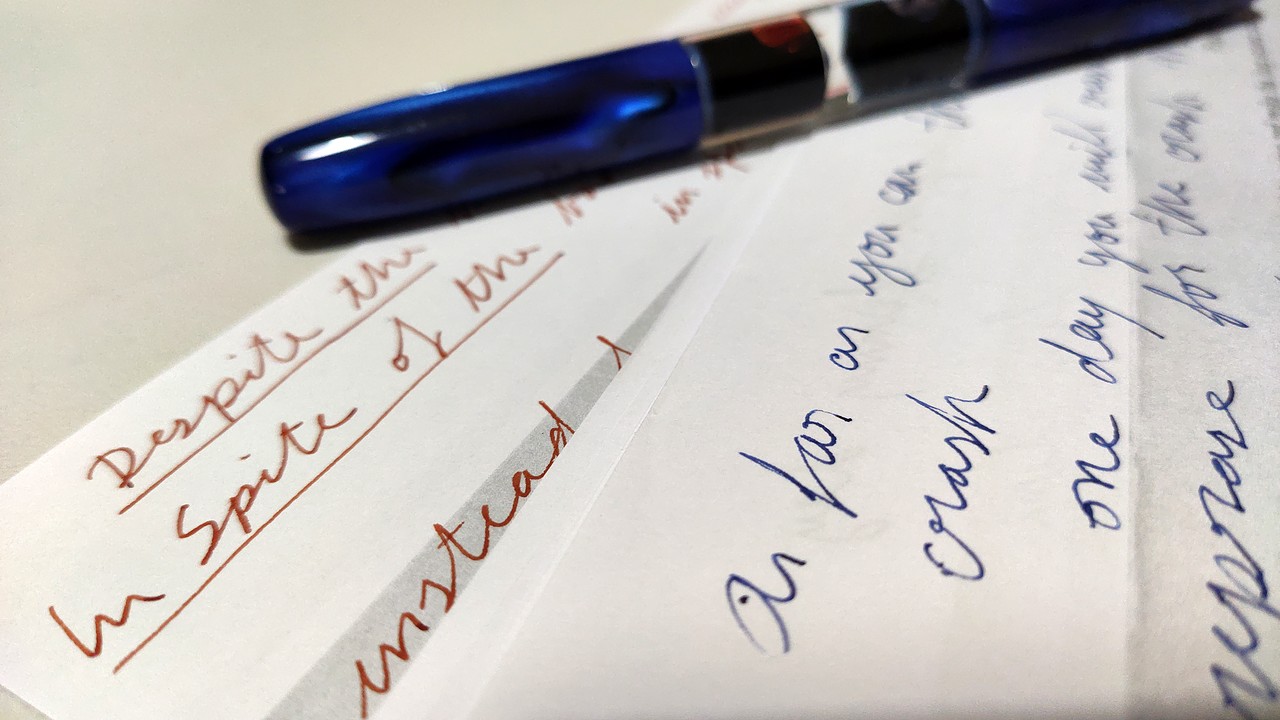 Despite the
In Spite of the
instead
As far as you can
crash
one day you will
for the crash